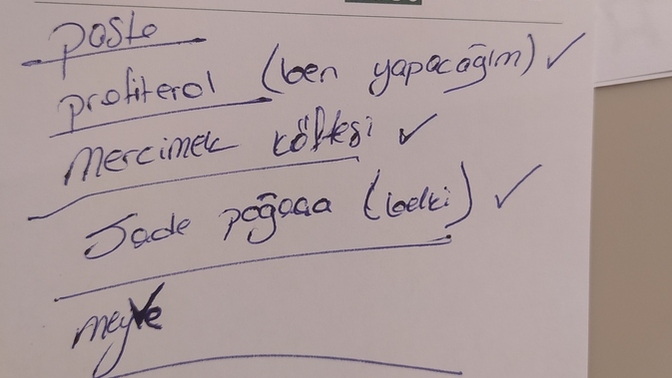 pasta
profiterol (ben yapacağım) ✓
mercimek köftesi ✓
Sade poğaça (belki) ✓
meyve